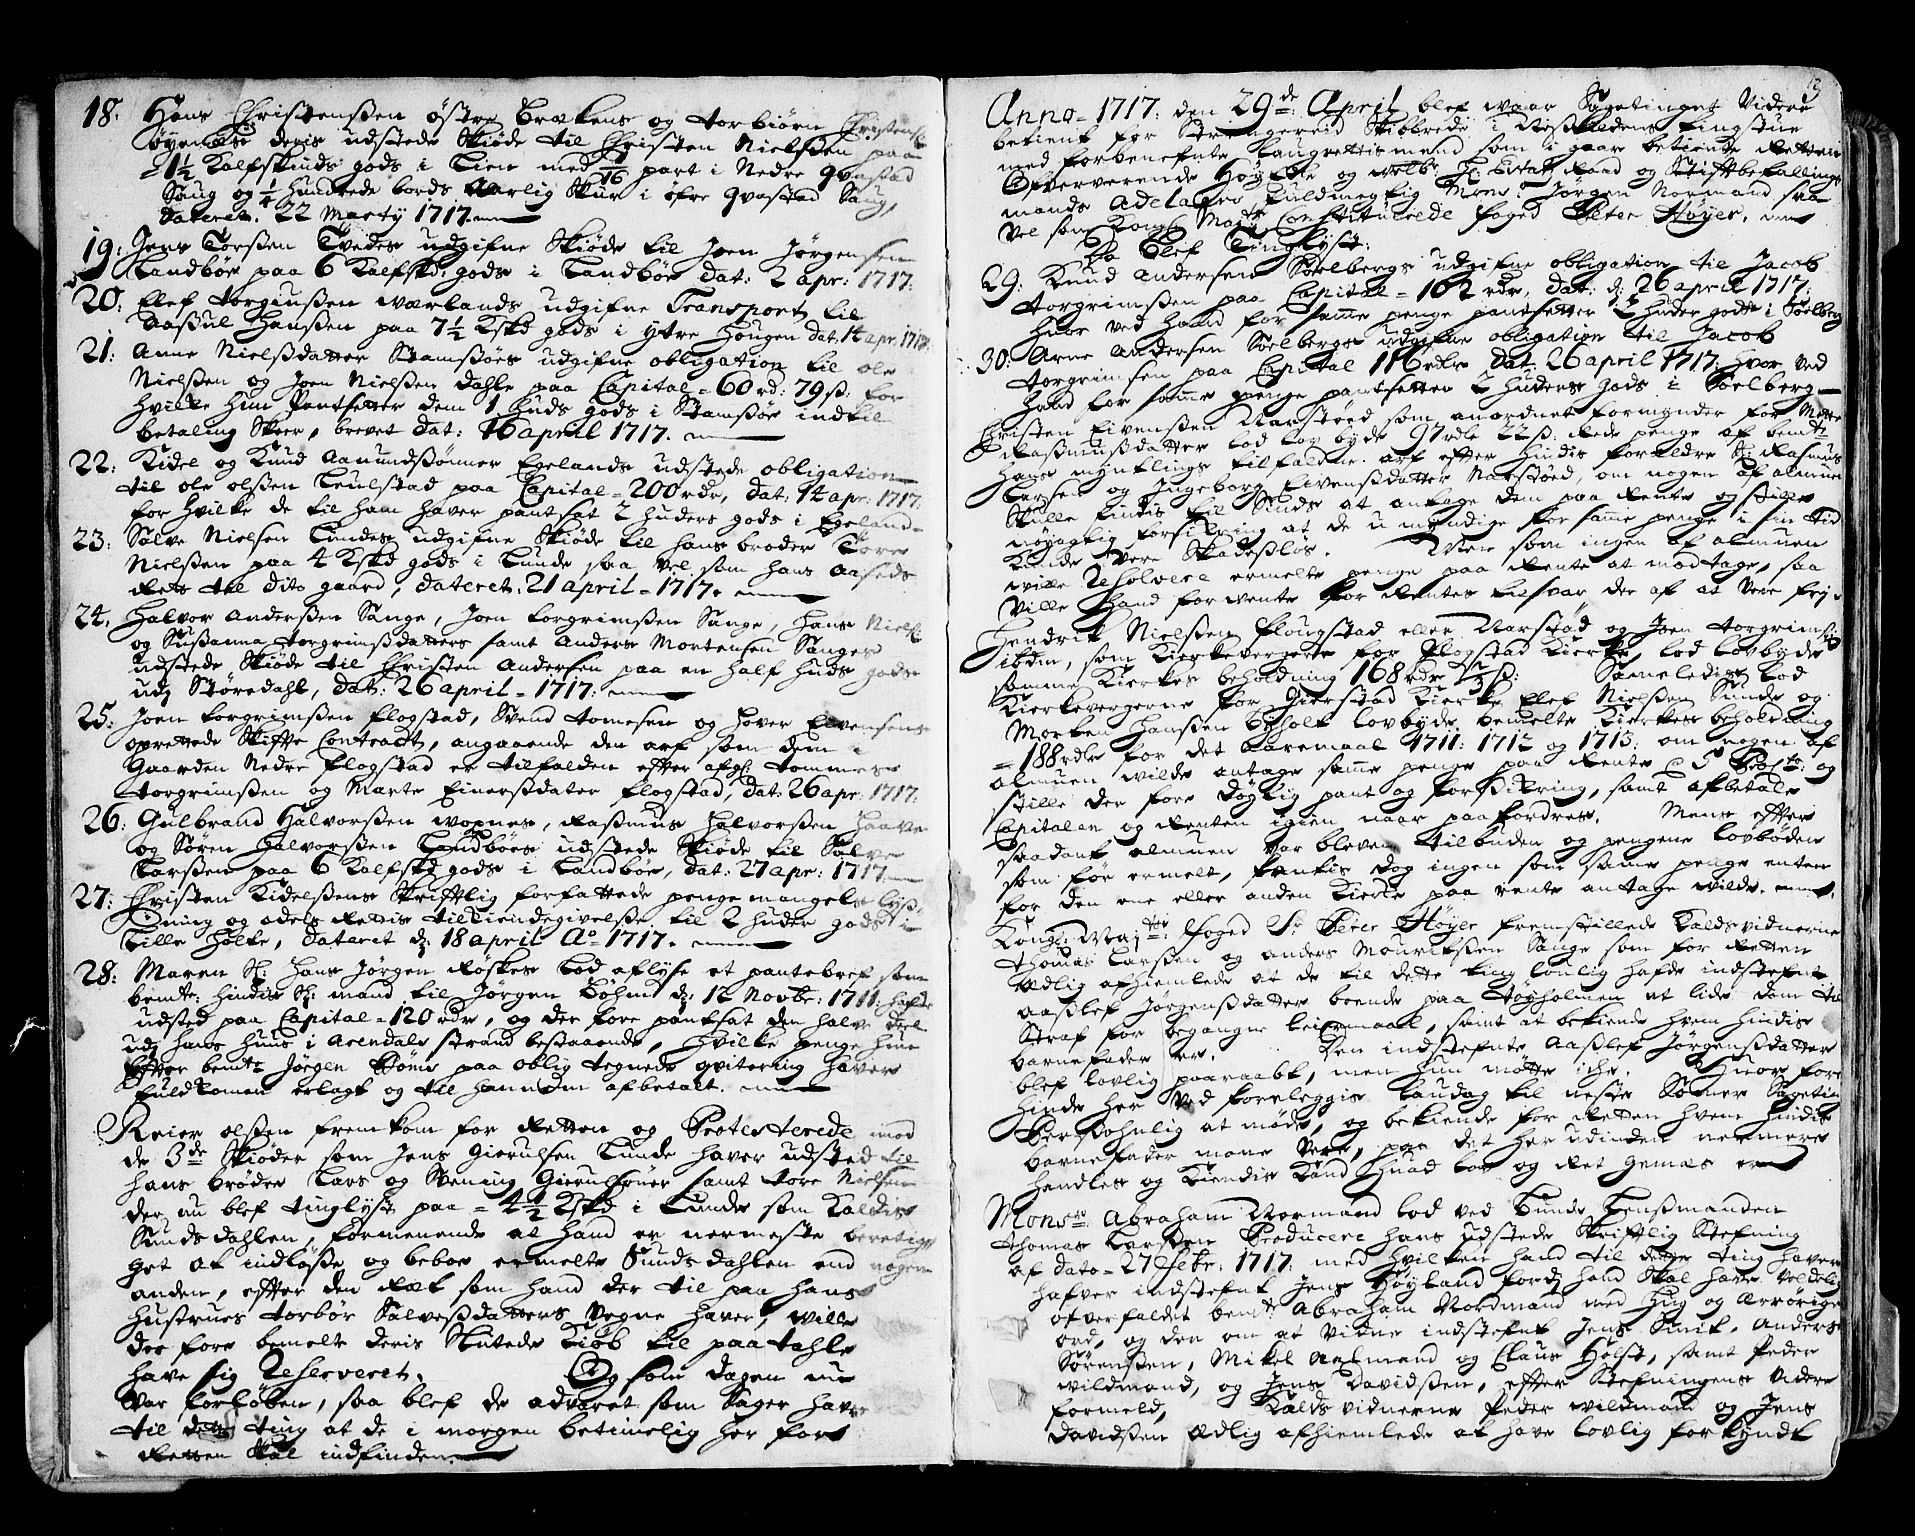 18. Hans Christenßen østre Brækens og Torbiørn Christensß
Øynæs deris udstede Skiøde til Christen Nielsßen paa
= 1½ Kalfskinds gods i Lien med 1/16 part i Nedre Qvastad
Saug og ¼ hundrede bords Aarlig Skur i øfre Qvastad Saug,
dateret. 22 Marty 1717.
19: Jens Torsßen Tvedes udgifne Skiøde til Joen Jørgensen
Landbøe paa 6 Kalfskd: gods i Landbøe dat: 2 apr: 1717:
20: Elef Torgiusßen Værlands udgifne Transport til
Aasßul Hansßen paa 7½ Kskd gods i ytre Hougen dat: 14 apr: 1717:
21: Anne Nielsßdatter Stamsøes udgifne obligation til ole
Nielsßen og Joen Nielsßen Dahle paa Capital = 60 rd: 79 ß: for
hvilke hun Pantsetter dem 1 huds gods i Stamsøe indtil
betaling Skeer, brevet dat: 16 april 1717.
22: Kidel og Knud Aanundsßønner Egelands udstede obligation
til ole olsßen Leulstad paa Capital = 200 rdr, dat: 14 apr: 1717:
for hvilke de til ham haver pantsat 2 huders gods i Egeland.
23: Sølve Nielsen Lundes udgifne Skiøde til hans broder Tore
Nielsßen paa 4 Kskd gods i Lunde saa vel som hans Aasæds
Rets til dito gaard, dateret. 21 april = 1717.
24: Halvor Andersßen Sange, Joen Torgrimsßen Sange, Hans Nielsß
og Susßanna Torgrimsßdatters samt Anders Mortensen Sanges
udstede Skiøde til Christen Andersen paa en half huds gods
udj Støredahl, dat: 26 april = 1717:
25: Joen Torgrimsßen Flogstad, Svend Tomesen og Haver Eivensens
oprettede Skifte Contract, angaaende den arf som dem i
Gaarden Nedre Flogstad er tilfalden efter afgl. Tommes
Torgrimsßen og Marte Einersßdater Flogstad, dat: 26 apr: 1717:
26: Gulbrand Halvorsßen Vopnes, Rasmus Halvorsßen Haave
og Søren Halvorsßen Landbøes udstede Skiøde til Sølve
Larsßen paa 6 Kalfskd gods i Landbøe, dat: 27 apr: 1717
27: Christen Kidelsßens Skriftlig forfattede penge mangels lyß-
ning og odels Rettis tilkiendegivelsße til 2 huder gods i
Lille Holte, dateret d: 18 april Ao 1717.
28: Maren Sl: Hans Jørgen Røskes lod aflyse et pantebref som
bemte: hindis Sl: mand til Jørgen Bøhm d: 12 Novbr: 1711: hafde
udsted paa Capital = 120 rdr, og der fore pantsat den halve deel
udj hans huus i Arendals strand bestaaende, hvilke penge hun
efter bemte Jørgen Bøms paa oblig tegnede qvitering haver
fuldkomen erlagt og til hannem afbetalt.
Reier olsßen fremkom for Retten og Protesterede mod
de 3de Skiøder som Jens Gierulsen Lunde haver udsted til
hans brøder Lars og Svening Gierulsønner samt Tore Nielsen
der nu blef tinglyst paa = 4½ Kskd i Lunde som Kaldis
Sundsdahlen, formenende at hand er nermeste beretig-
get at indløsße og beboe ermelte Sundsdahlen end nogen
anden, efter den Ræt som hand der til paa hans
hustrues Torbør Sølvesßdatters Vegne haver, wille
der fore bemelte deris Sluttede Kiøb til paatahle
have sig Reserveret. Og som dagen nu
var forløben, saa blef de advaret som Sager have
til dette ting at de i morgen betimelig her for
Retten Skal indfinden.
3
Anno = 1717: den 29de April blef waar Sagetinget Videre
betient for Strengereid Skibbrede i Næskildens tingstue
med forbenefnte Laugrettismend som i gaar betiente Retten
Ofververende Høyedle og welbr. Hr. Etatz Raad og Stiftbefallings
mands Adelaers fuldmegtig Monsr Jørgen Normand saa
vel som Kongl. Maytts Constituerede foged Peter Høyer.
Da Blef Tinglyst:
29: Knud Andersen Sælbergs udgifne obligation til Jacob
Torgrimsßen paa Capital = 162 rdr. dat: d: 26 april 1717:
hvor ved hand for samme penge pantsetter 2½ huder gods i Sælberg
30: Arne Andersen Sælbergs udgifne obligation til Jacob
Torgrimsen paa Capital 116 rdlr dat: 26 april 1717: hvor ved
hand for samme penge pantsetter 2 huders gods i Sælberg
Christen Eivensßen Narstøed som anordnet formynder for Mette
Rasmusßdatter lod Lov byde 97 rdlr 22 ß: Rede penge af bemte
hans myntlings tilfaldne arf efter hindis forældre Sl: Rasmus
Larsen og Ingeborg Eivensßdatter Narstøed, om nogen af almuen
skulle findis til Sinds at antage dem paa Rente og stille
nøyagtig forsikring at de u-myndige for samme penge i sin tid
kunde vere Skadesløs. Men som ingen af almuen
ville Resolvere ermelte penge paa Rente at modtage, saa
Ville hand formente for Rentes tilsvar der af at Vere frj
Hendrik Nielsßen Flougstad eller Narstød og Joen Torgrimsß
ibdm, som Kierkevergere for Flogstad Kierke, lod Lovbyde
samme Kierkes beholdning 168 rdr ⅓ ß: Sameledis lod
Kierkevergerne for Giærstad Kierke Elef Nielsßen Sunde og
Morten Hansßen Escholt lovbyde bemelte Kierkes beholdning
= 188 rdlr for det Aaremaal 1711: 1712 og 1713: om nogen af
almuen wilde antage samme penge paa Rente a 5 Procto: og
stille der fore døgtig pant og forsikring, samt afbetale
Capitalen og Renten igien naar paafordres. Mens efter
saadant almuen var bleven tilbuden og pengene lovbøden
som før ermelt, fantis dog ingen som samme penge enten
for den ene eller anden Kierke paa rente antage wilde.
Kongl: Maytts foged Sr Peter Høyer fremstillede Kaldsvidnerne
Thomas Larsßen og Anders Mouritsßen Sange som for Retten
Ædlig afhiemlede at de til dette ting loulig hafde indstefnt
Aasßlef Jørgensßdatter boende paa Tøyholmen at lide dom til
Straf for begangne leiermaal, samt at bekiende hvem hindis
barnefader er. Den indstefnte Aaslef Jørgensßdatter
blef lovlig paaraabt, men hun mødte iche. Hvor fore
hinde her ved foreleggis Laudag til neste Somer Sageting
Perschonlig at møde, og bekiende for Retten hvem hindis
barnefader mone Vere, paa det her udinden nermere
handles og Kiendis kand huad lov og Ret gemæs er
Monsr: Abraham Normand lod ved Bunde Lensßmanden
Thomas Larsßen Producere hans udstede Skriftlig Stefning
af dato = 27 Febr: 1717: med hvilken hand til dette ting haver
hafver indstefnt Jens Høyland fordj hand Skal have Veldelig
ofverfaldet bemte Abraham Nordmand med hug og Ærrørige
ord, og der om at vidne indstefnt Jens Smit, Anders
Sørensßen, Mikel Aalmand og Claus Holst, samt Peder
wildmand, og Jens Davidsßen, efter Stefningens Videre
formeld, Kaldsvidnerne Peder wildmand og Jens
Davidsßen Ædlig afhiemlede at have lovlig forkyndt